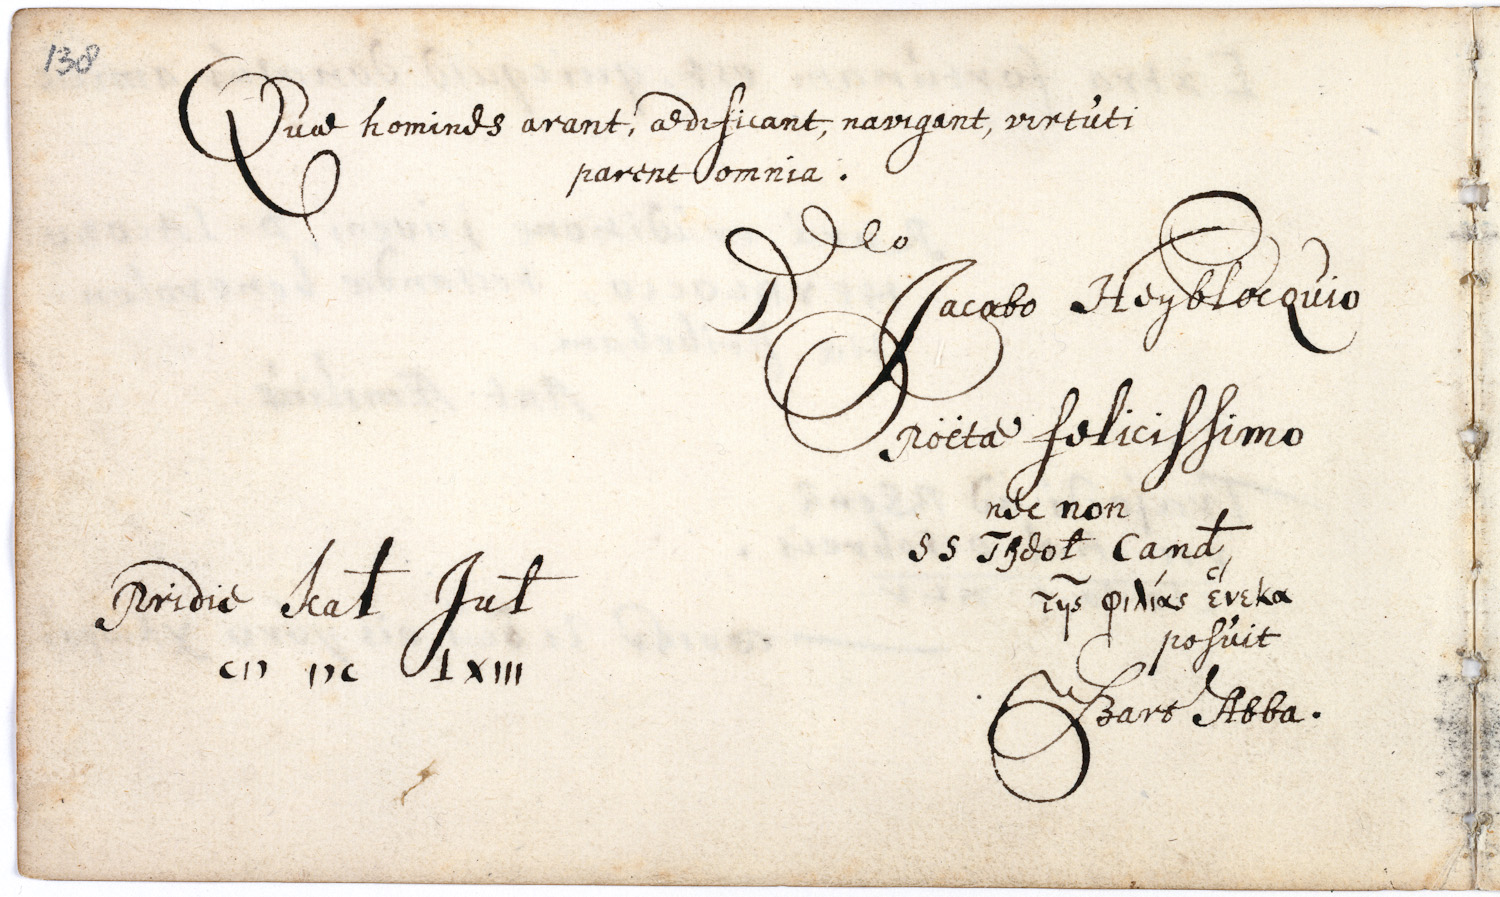 138
Quæ homines arant, ædificant, navigant, virtuti
parent omnia.
Dno
D Jacobo Heyblocquio
Poëtæ felicissimo
nec non
SS Theol Cand,
τῆς φιλίας ἕνεκα
posuit
Bart Abba.
Pridie Kal Jul
CIƆ IƆC LXIII